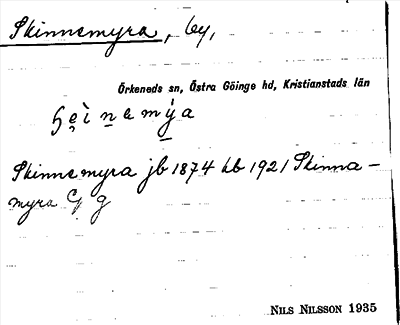 Skinnemyra, by,
Örkeneds sn, Östra Göinge hd, Kristianstads län
Skinnemyra jb 1874 hb 1921 Skinna-
myra G g
NILS NILSSON 1935